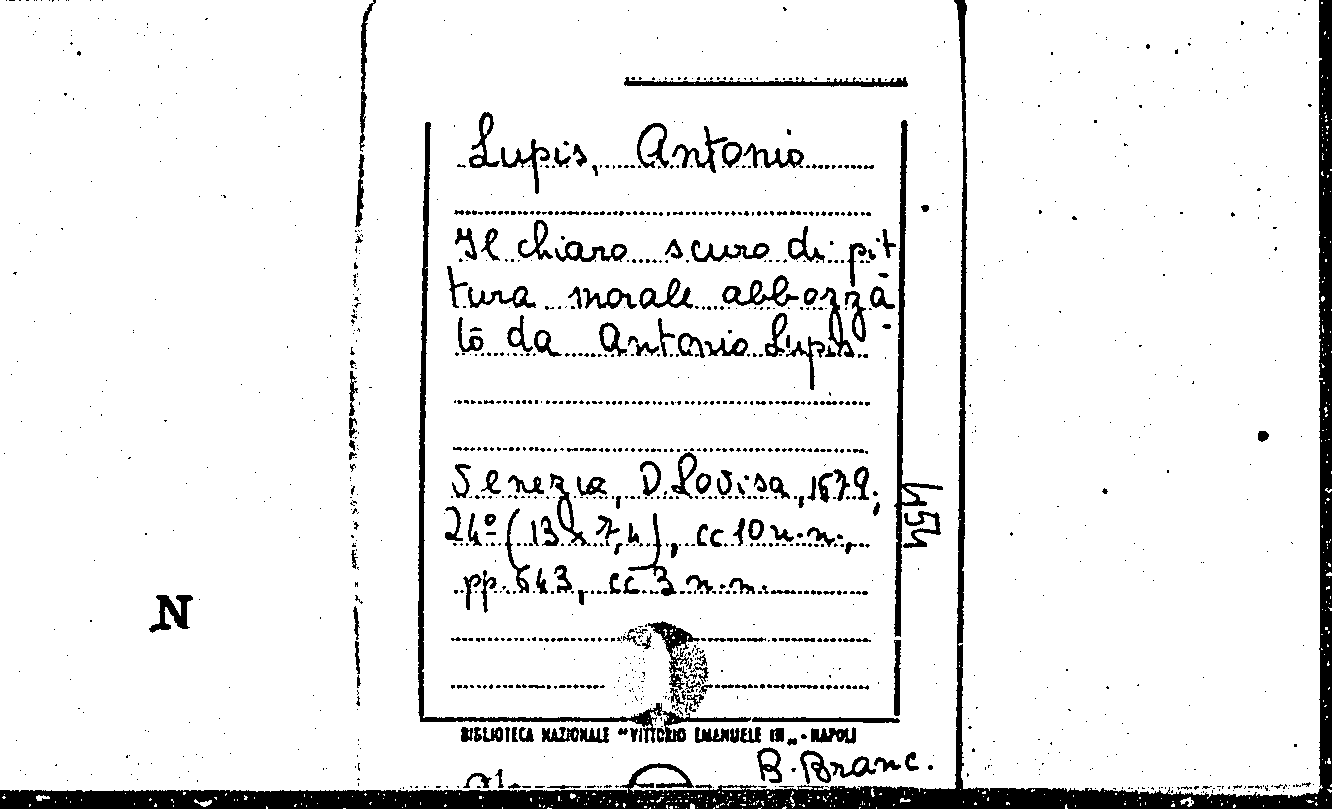 Lupis, Antonio
Il chiaro scuro di pit
tura morale abbozza
to da Antonio Lupis
Venezia, D. Lovisa, 1679;
24º (13 x 7,4), cc 10 n.n.,
pp. 643, cc 3 n.n.
454
N
BIBLIOTECA NAZIONALE "VITTORIO EMANUELE III„ - NAPOLI
B. Branc.